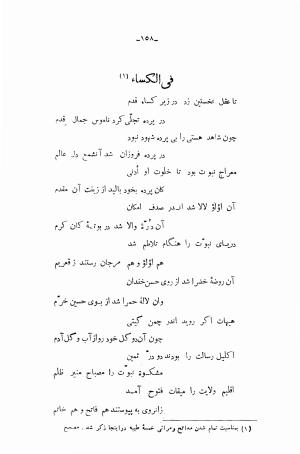 -۱۵۸-
فی الکساء (۱)
تا عقل نخستین زد در زیر کساء قدم
در پرده تجلّی کرد ناموس جمال قدم
چون شاهد هستی را بی پرده شهود نبود
در پرده فروزان شد آنشمع دل عالم
معراج نبوت بود تا خلوت او أدنی
کان پرده بخود بالید از زینت آن مقدم
آن لؤلؤ لالا شد اندر صدف امکان
آن درّۀ والا شد در بوتۀ کان کرم
دریای نبوّت را هنگام تلاطم شد
هم لؤلؤ و هم مرجان رستند ز قعریم
آن روضۀ خضرا شد از روی حسن خندان
وان لالۀ حمرا شد از بوی حسین خرّم
هیهات اگر روید اندر چمن گیتی
چون آن دو گل خود رو از آب و گل آدم
اکلیل رسالت را بودند دو درّ ثمین
مشکوة نبوّت را مصباح منیر ظلم
اقلیم ولایت را میقات فتوح آمد
زانروی به پیوستند هم فاتح و هم خاتم
(۱) بمناسبت تمام شدن مدائح و مراثی خمسۀ طیبه در اینجا ذکر شد . مصحح